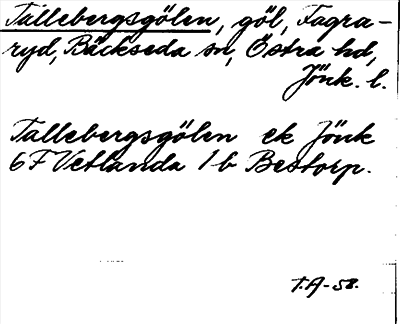 Tallebergsgölen, göl, Fagra-
ryd, Bäckseda sn, Östra hd,
Jönk. l.
Tallebergsgölen ek Jönk
6F Vetlanda 1b Bestorp.
T.A-58.